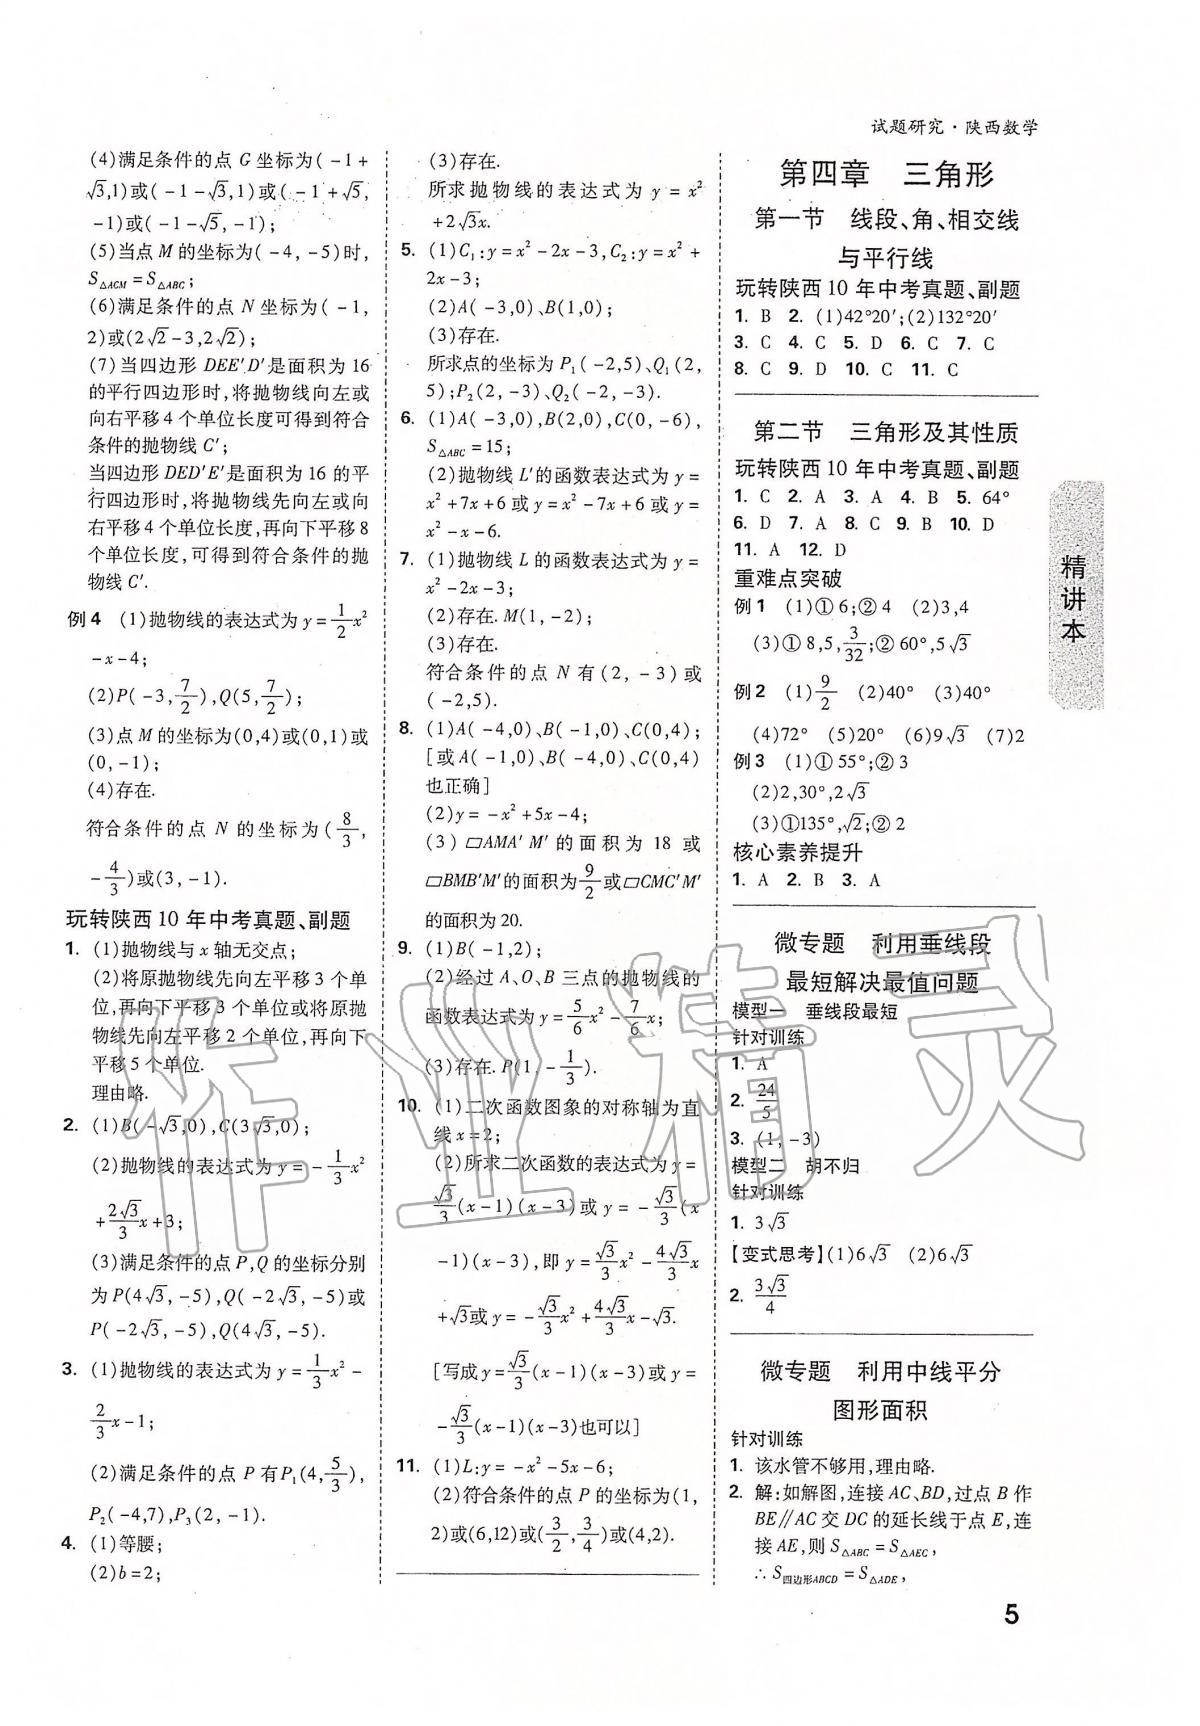 试题研究·陕西数学
(4)满足条件的点 G 坐标为(-1+
√3,1)或(-1-√3,1)或(-1+√5,
-1)或(-1-√5,-1);
(5)当点 M 的坐标为(-4,-5)时,
S△ACM=S△ABC;
(6)满足条件的点 N 坐标为(-1,
2)或(2√2-3,2√2);
(7)当四边形 DEE′D′是面积为 16
的平行四边形时,将抛物线向左或
向右平移 4 个单位长度可得到符合
条件的抛物线 C′;
当四边形 DED′E′是面积为 16 的平
行四边形时,将抛物线先向左或向
右平移 4 个单位长度,再向下平移 8
个单位长度,可得到符合条件的抛
物线 C′.
例 4 (1)抛物线的表达式为 y=1/2x²
-x-4;
(2)P(-3,7/2),Q(5,7/2);
(3)点 M 的坐标为(0,4)或(0,1)或
(0,-1);
(4)存在.
符合条件的点 N 的坐标为(8/3,
-4/3)或(3,-1).
玩转陕西 10 年中考真题、副题
1. (1)抛物线与 x 轴无交点;
(2)将原抛物线先向左平移 3 个单
位,再向下平移 3 个单位或将原抛
物线先向左平移 2 个单位,再向下
平移 5 个单位.
理由略.
2. (1)B(-√3,0),C(3√3,0);
(2)抛物线的表达式为 y=-1/3x²
+2√3/3x+3;
(3)满足条件的点 P,Q 的坐标分别
为 P(4√3,-5),Q(-2√3,-5)或
P(-2√3,-5),Q(4√3,-5).
3. (1)抛物线的表达式为 y=1/3x²-
2/3x-1;
(2)满足条件的点 P 有P₁(4,5/3),
P₂(-4,7),P₃(2,-1).
4. (1)等腰;
(2)b=2;
(3)存在.
所求抛物线的表达式为 y=x²
+2√3x.
5. (1)C₁:y=x²-2x-3,C₂:y=x²+
2x-3;
(2)A(-3,0)、B(1,0);
(3)存在.
所求点的坐标为 P₁(-2,5)、Q₁(2,
5);P₂(2,-3)、Q₂(-2,-3).
6. (1)A(-3,0),B(2,0),C(0,-6),
S△ABC=15;
(2)抛物线 L′的函数表达式为 y=
x²+7x+6 或 y=x²-7x+6 或 y=
x²-x-6.
7. (1)抛物线 L 的函数表达式为 y=
x²-2x-3;
(2)存在. M(1,-2);
(3)存在.
符合条件的点 N 有(2,-3)或
(-2,5).
8. (1)A(-4,0)、B(-1,0)、C(0,4);
[或 A(-1,0)、B(-4,0)、C(0,4)
也正确]
(2)y=-x²+5x-4;
(3)▱AMA′M′的面积为 18 或
▱BMB′M′的面积为9/2或▱CMC′M′
的面积为 20.
9. (1)B(-1,2);
(2)经过 A、O、B 三点的抛物线的
函数表达式为 y=5/6x²-7/6x;
(3)存在. P(1,-1/3).
10. (1)二次函数图象的对称轴为直
线 x=2;
(2)所求二次函数的表达式为 y=
√3/3(x-1)(x-3)或 y=-√3/3(x
-1)(x-3),即 y=√3/3x²-4√3/3x
+√3或 y=-√3/3x²+4√3/3x-√3.
[写成 y=√3/3(x-1)(x-3)或 y=
-√3/3(x-1)(x-3)也可以]
11. (1)L:y=-x²-5x-6;
(2)符合条件的点 P 的坐标为(1,
2)或(6,12)或(3/2,3/4)或(4,2).
第四章 三角形
第一节 线段、角、相交线
与平行线
玩转陕西 10 年中考真题、副题
1. B 2. (1)42°20′;(2)132°20′
3. C 4. C 5. D 6. C 7. C
8. C 9. D 10. C 11. C
第二节 三角形及其性质
玩转陕西 10 年中考真题、副题
1. C 2. A 3. A 4. B 5. 64°
6. D 7. A 8. C 9. B 10. D
11. A 12. D
重难点突破
例 1 (1)①6;②4 (2)3,4
(3)①8,5,3/32;②60°,5√3
例 2 (1)9/2 (2)40° (3)40°
(4)72° (5)20° (6)9√3 (7)2
例 3 (1)①55°;②3
(2)2,30°,2√3
(3)①135°,√2;②2
核心素养提升
1. A 2. B 3. A
微专题 利用垂线段
最短解决最值问题
模型一 垂线段最短
针对训练
1. A
2. 24/5
3. (1,-3)
模型二 胡不归
针对训练
1. 3√3
【变式思考】(1)6√3 (2)6√3
2. 3√3/4
微专题 利用中线平分
图形面积
针对训练
1. 该水管不够用,理由略.
2. 解:如解图,连接 AC、BD,过点 B 作
BE∥AC 交 DC 的延长线于点 E,连
接 AE,则 S△ABC=S△AEC,
∴S四边形ABCD=S△ADE,
精讲本
5
作业精灵